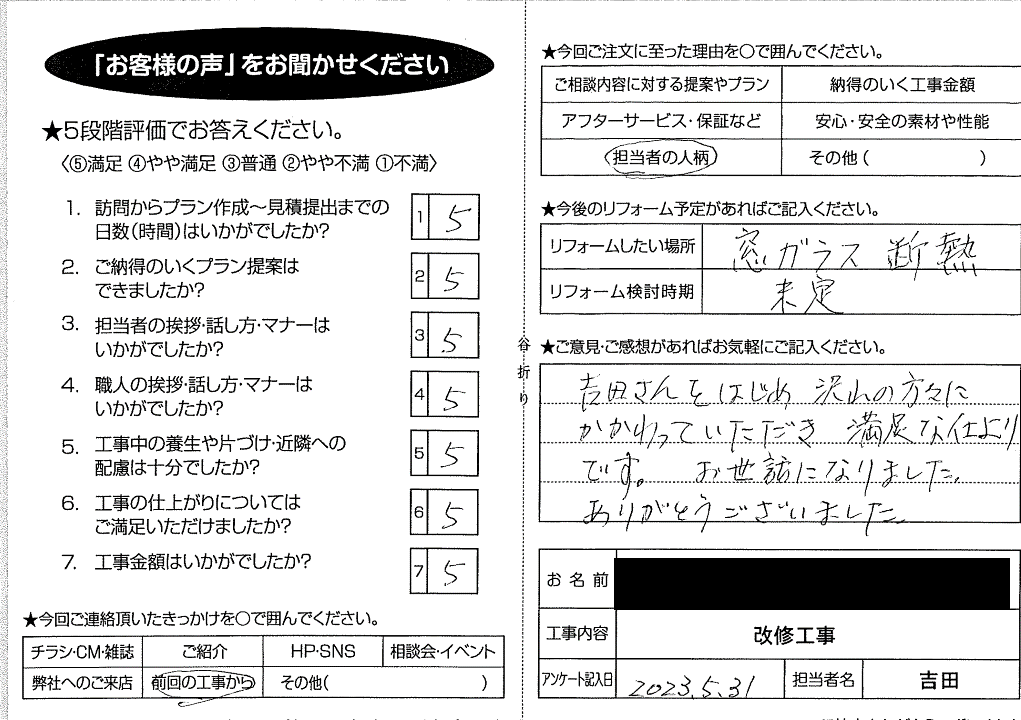 「お客様の声」をお聞かせください
★5段階評価でお答えください。
〈⑤満足 ④やや満足 ③普通 ②やや不満 ①不満〉
1. 訪問からプラン作成〜見積提出までの
日数(時間)はいかがでしたか?
1 5
2. ご納得のいくプラン提案は
できましたか?
2 5
3. 担当者の挨拶・話し方・マナーは
いかがでしたか?
3 5
4. 職人の挨拶・話し方・マナーは
いかがでしたか?
4 5
5. 工事中の養生や片づけ・近隣への
配慮は十分でしたか?
5 5
6. 工事の仕上がりについては
ご満足いただけましたか?
6 5
7. 工事金額はいかがでしたか?
7 5
★今回ご連絡頂いたきっかけを○で囲んでください。
チラシ・CM・雑誌 ご紹介 HP・SNS 相談会・イベント
弊社へのご来店 前回の工事から その他( )
谷折り
★今回ご注文に至った理由を○で囲んでください。
ご相談内容に対する提案やプラン 納得のいく工事金額
アフターサービス・保証など 安心・安全の素材や性能
担当者の人柄 その他( )
★今後のリフォーム予定があればご記入ください。
リフォームしたい場所 窓ガラス 断熱
リフォーム検討時期 未定
★ご意見・ご感想があればお気軽にご記入ください。
吉田さんをはじめ 沢山の方々に
かかわっていただき 満足な仕上り
です。 お世話になりました。
ありがとうございました。
お名前
工事内容 改修工事
アンケート記入日 2023.5.31 担当者名 吉田